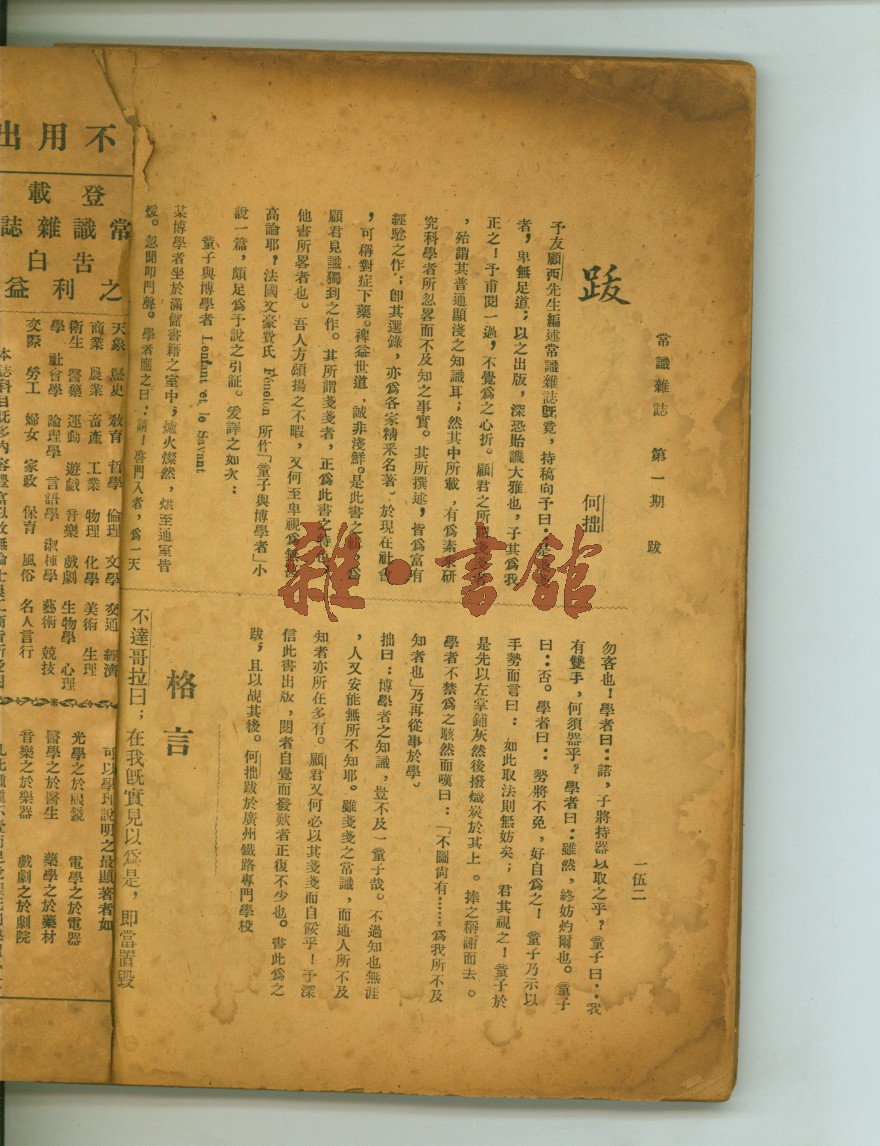 常識雜誌　第一期　跋
一伍二
跋
何拙
予友顧西先生編述常識雜誌既竟，持稿向予曰：是
者，卑無足道；以之出版，深恐貽譏大雅也，子其為我
正之！予甫閱一過，不覺為之心折。顧君之所謂
，殆謂其普通顯淺之知識耳；然其中所載，有為素來研
究科學者所忽畧而不及知之事實。其所撰述，皆為富有
經驗之作；即其選錄，亦為各家精釆名著。於現在社會
，可稱對症下藥。裨益世道，誠非淺鮮。是此書之輯，為
顧君見識獨到之作。其所謂戔戔者，正為此書之特色，
他書所畧者也。吾人方頌揚之不暇，又何至卑視為無
高論耶？法國文豪費氏 Fénelon 所作「童子與博學者」小
說一篇，頗足為予說之引証。爰譯之如次：
童子與博學者 Lenfant et le Savant
某博學者坐於滿儲書籍之室中；爐火燦然，烘至通室皆
煖。忽聞叩門聲。學者應之曰：請！啓門入者，為一天
勿客也！學者曰：諾，子將持器以取之乎？童子曰：我
有雙手，何須器乎？學者曰：雖然，終妨灼爾也。童子
曰：否。學者曰：勢將不免，好自為之！童子乃示以
手勢而言曰：如此取法則無妨矣；君其視之！童子於
是先以左掌鋪灰然後撥熾炭於其上。捧之稱謝而去。
學者不禁為之駭然而嘆曰：「不圖尙有……為我所不及
知者也」乃再從事於學。
拙曰：博學者之知識，豈不及一童子哉。不過知也無涯
，人又安能無所不知耶。雖戔戔之常識，而通人所不及
知者亦所在多有。顧君又何必以其戔戔而自餒乎！予深
信此書出版，閱者自覺而發欵者正復不少也。書此為之
跋；且以覘其後。何拙跋於廣州鐵路專門學校
格言
不達哥拉曰；在我既實見以為是，即當置毀
不用出
登載
常識雜誌
告白
之利益
天象 歷史 教育 哲學 倫理 文學 交通 經濟
商業 農業 畜產 工業 物理 化學 美術 生理
衛生 醫藥 運動 遊戲 音樂 戲劇 生物學 心理
學 社會學 論理學 言語學 淑種學 藝術 競技
交際 勞工 婦女 家政 保育 風俗 名人言行
本誌科目既多內容豐富
可以學理說明之最顯著者如
光學之於眼鏡 電學之於電器
醫學之於醫生 藥學之於藥材
音樂之於樂器 戲劇之於劇院
雜·書館